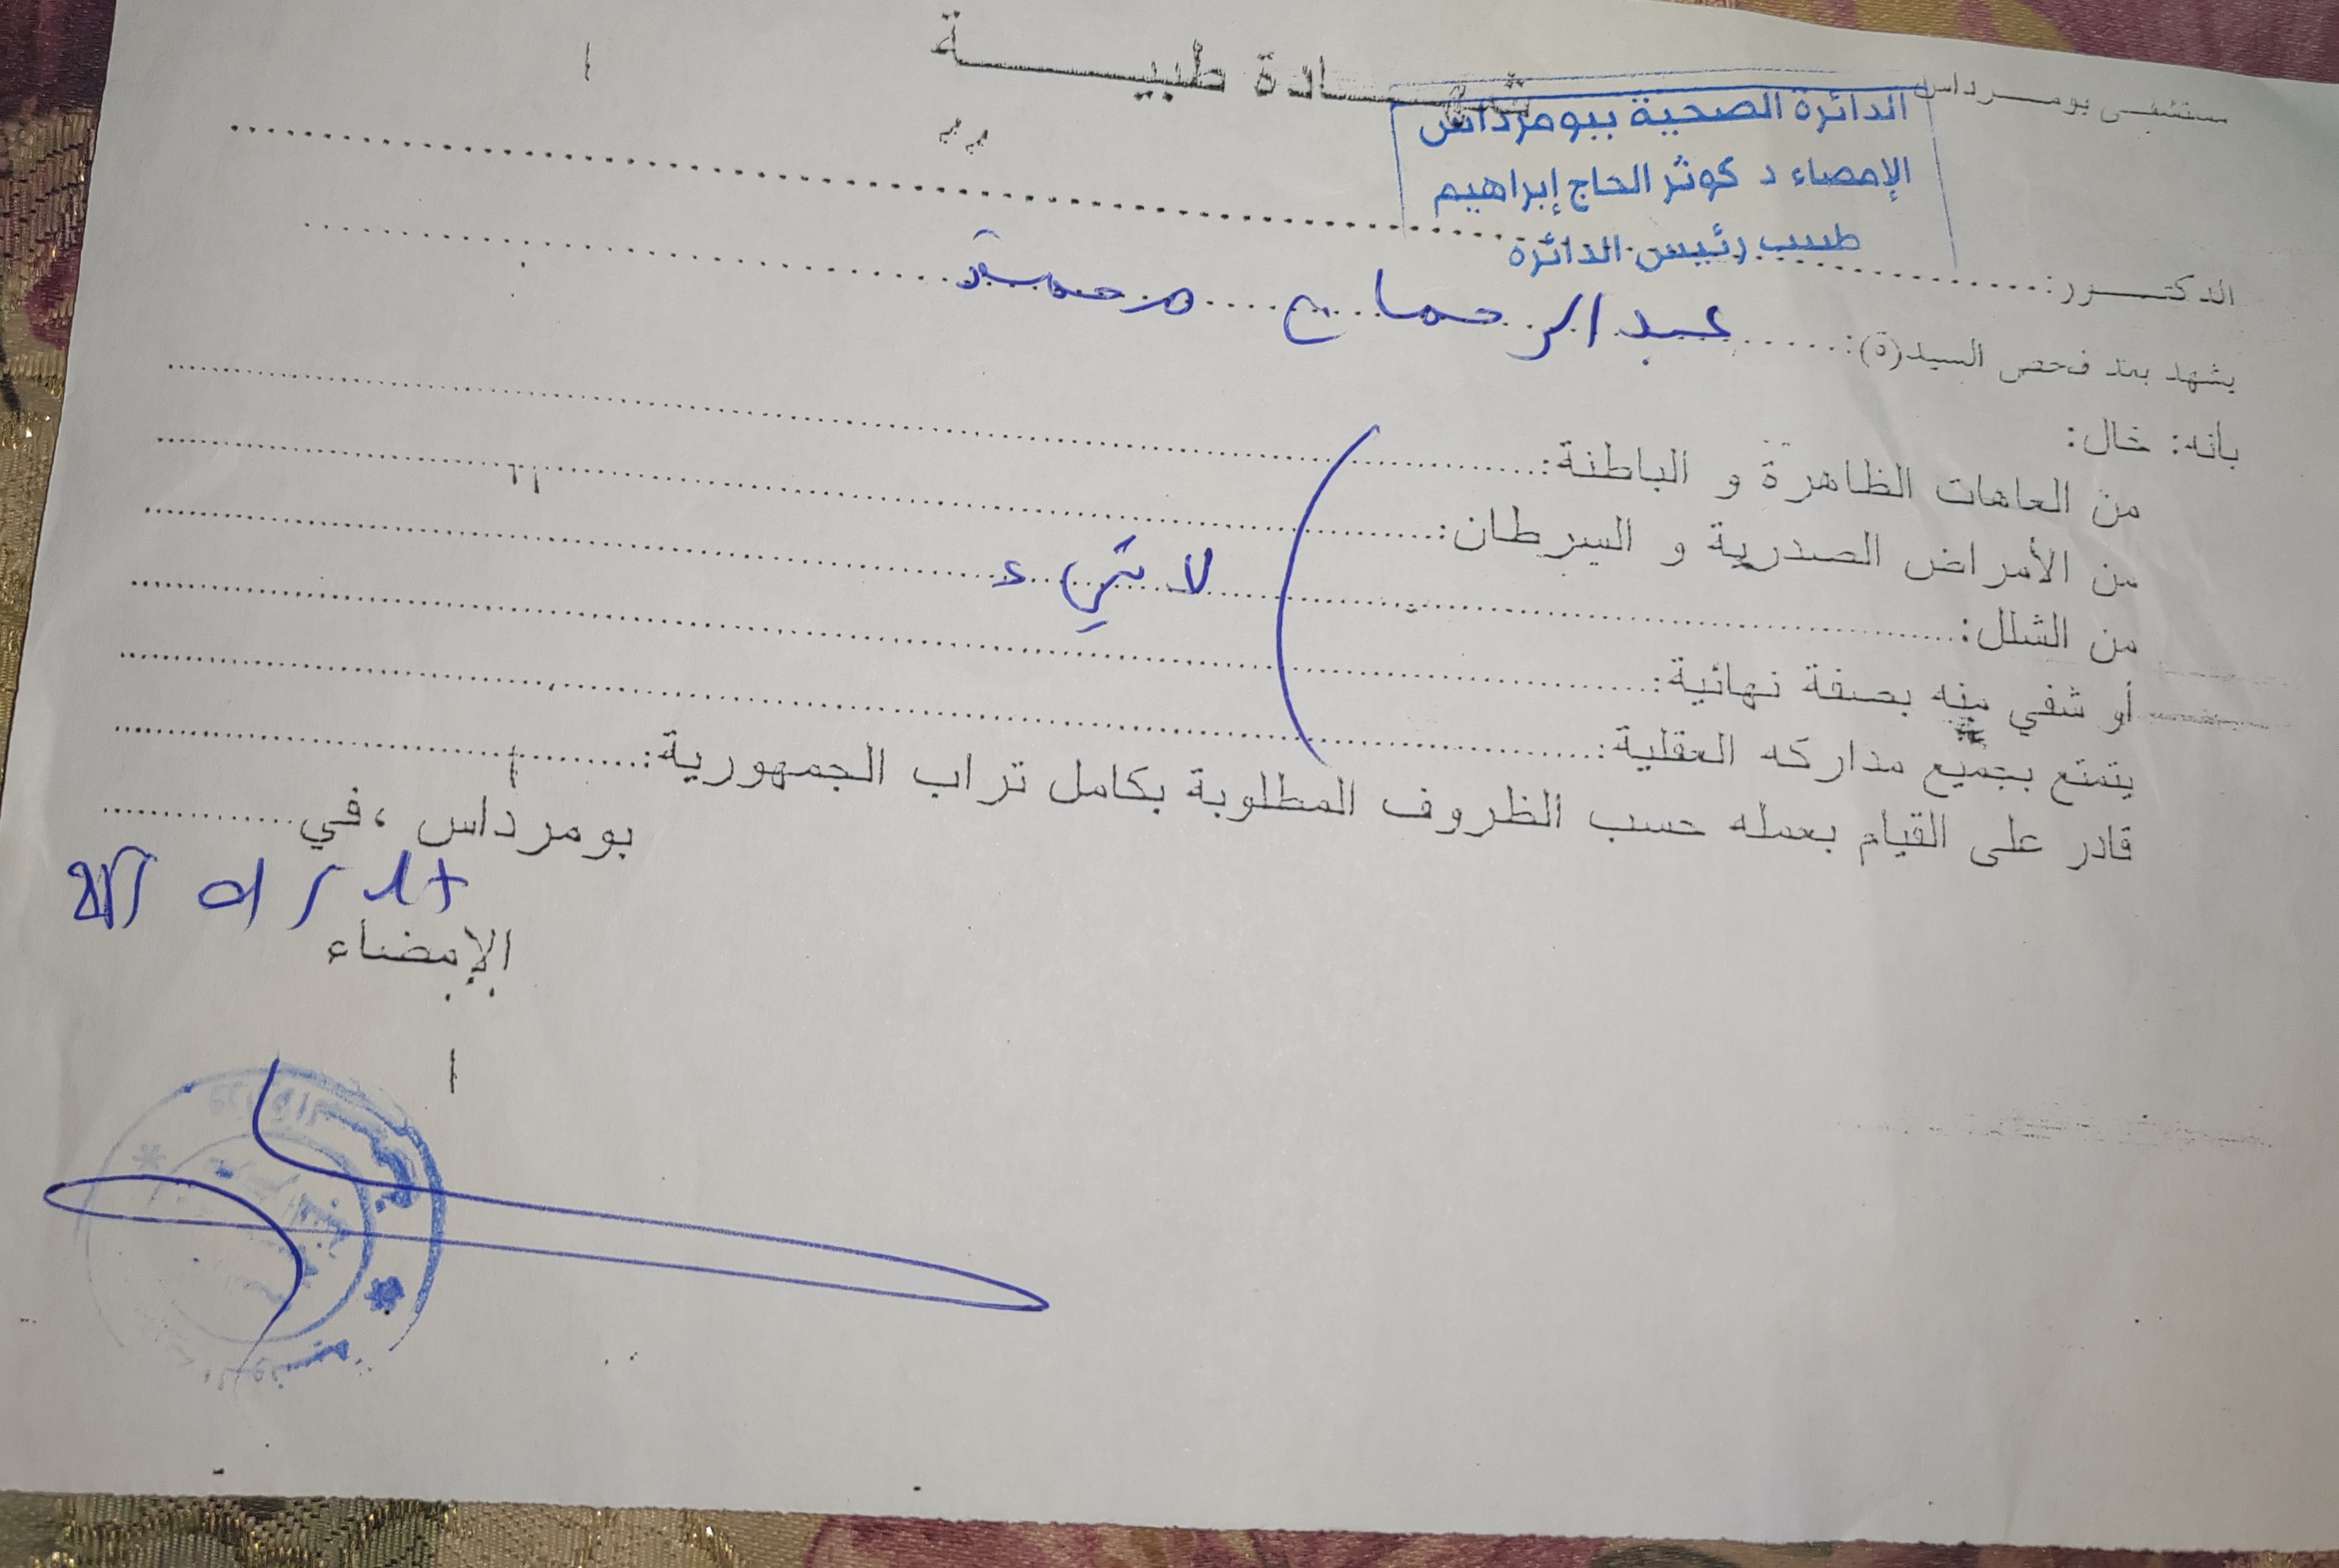 شهادة طبية
مستشفى بومرداس
الدائرة الصحية ببومرداس
الإمضاء د كوثر الحاج إبراهيم
طبيب رئيس الدائرة
الدكتور:
يشهد بعد فحص السيد(ة): عبد الرحماني محمد
بأنه: خال:
من العاهات الظاهرة و الباطنة:
من الأمراض الصدرية و السرطان:
من الشلل:
لا شيء
أو شفي منه بصفة نهائية:
يتمتع بجميع مداركه العقلية:
قادر على القيام بعمله حسب الظروف المطلوبة بكامل تراب الجمهورية:
بومرداس ،في
الإمضاء